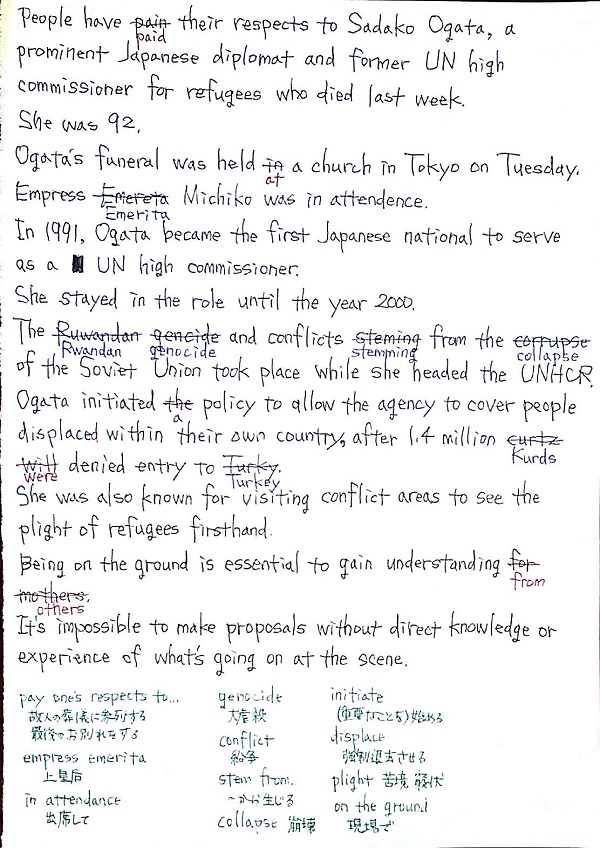 People have pain their respects to Sadako Ogata, a
paid
prominent Japanese diplomat and former UN high
commissioner for refugees who died last week.
She was 92.
Ogata's funeral was held in a church in Tokyo on Tuesday.
at
Empress Emereta Michiko was in attendence.
Emerita
In 1991, Ogata became the first Japanese national to serve
as a UN high commissioner.
She stayed in the role until the year 2000.
The Ruwandan gencide and conflicts steming from the corrupse
Rwandan genocide stemming collapse
of the Soviet Union took place while she headed the UNHCR.
Ogata initiated the policy to allow the agency to cover people
a
displaced within their own country, after 1.4 million curtz
Kurds
will denied entry to Turky.
were Turkey
She was also known for visiting conflict areas to see the
plight of refugees firsthand.
Being on the ground is essential to gain understanding for
from
mothers.
others
It's impossible to make proposals without direct knowledge or
experience of what's going on at the scene.
pay one's respects to... genocide initiate
故人の葬儀に参列する 大虐殺 (重要なことを)始める
最後のお別れをする conflict displace
紛争 強制退去させる
empress emerita stem from. plight 苦境 窮状
上皇后 〜から生じる on the ground
in attendance collapse 崩壊 現場で
出席して